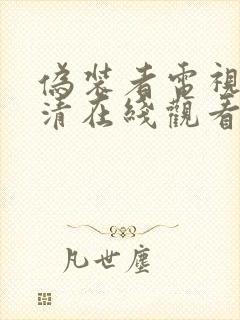 偽裝者電視
清在綫觀看
凡世塵